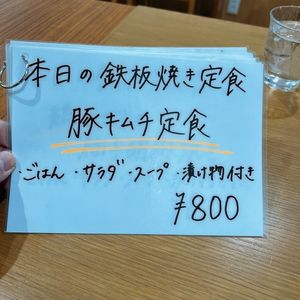 本日の鉄板焼き定食
豚キムチ定食
・ごはん ・サラダ ・スープ ・漬け物付き
¥800